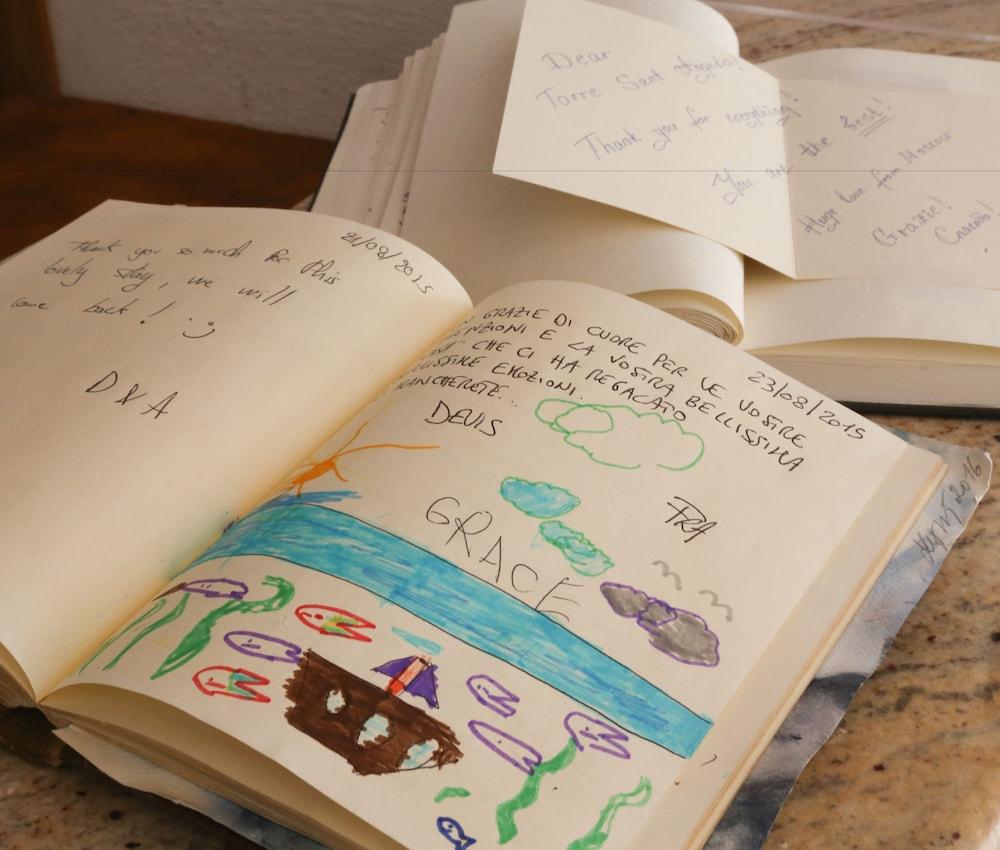 21/08/2015
Thank you so much for this
lovely stay, we will
come back! :)
D & A
23/08/2015
GRAZIE DI CUORE PER LE VOSTRE
E LA VOSTRA BELLISSIMA
CHE CI HA REGALATO
EMOZIONI.
DEVIS
FRA
GRACE
Dear
Torre Sant Angelo!
Thank you for everything!
You are the best!
Huge love from Moscow
Grazie!
2016